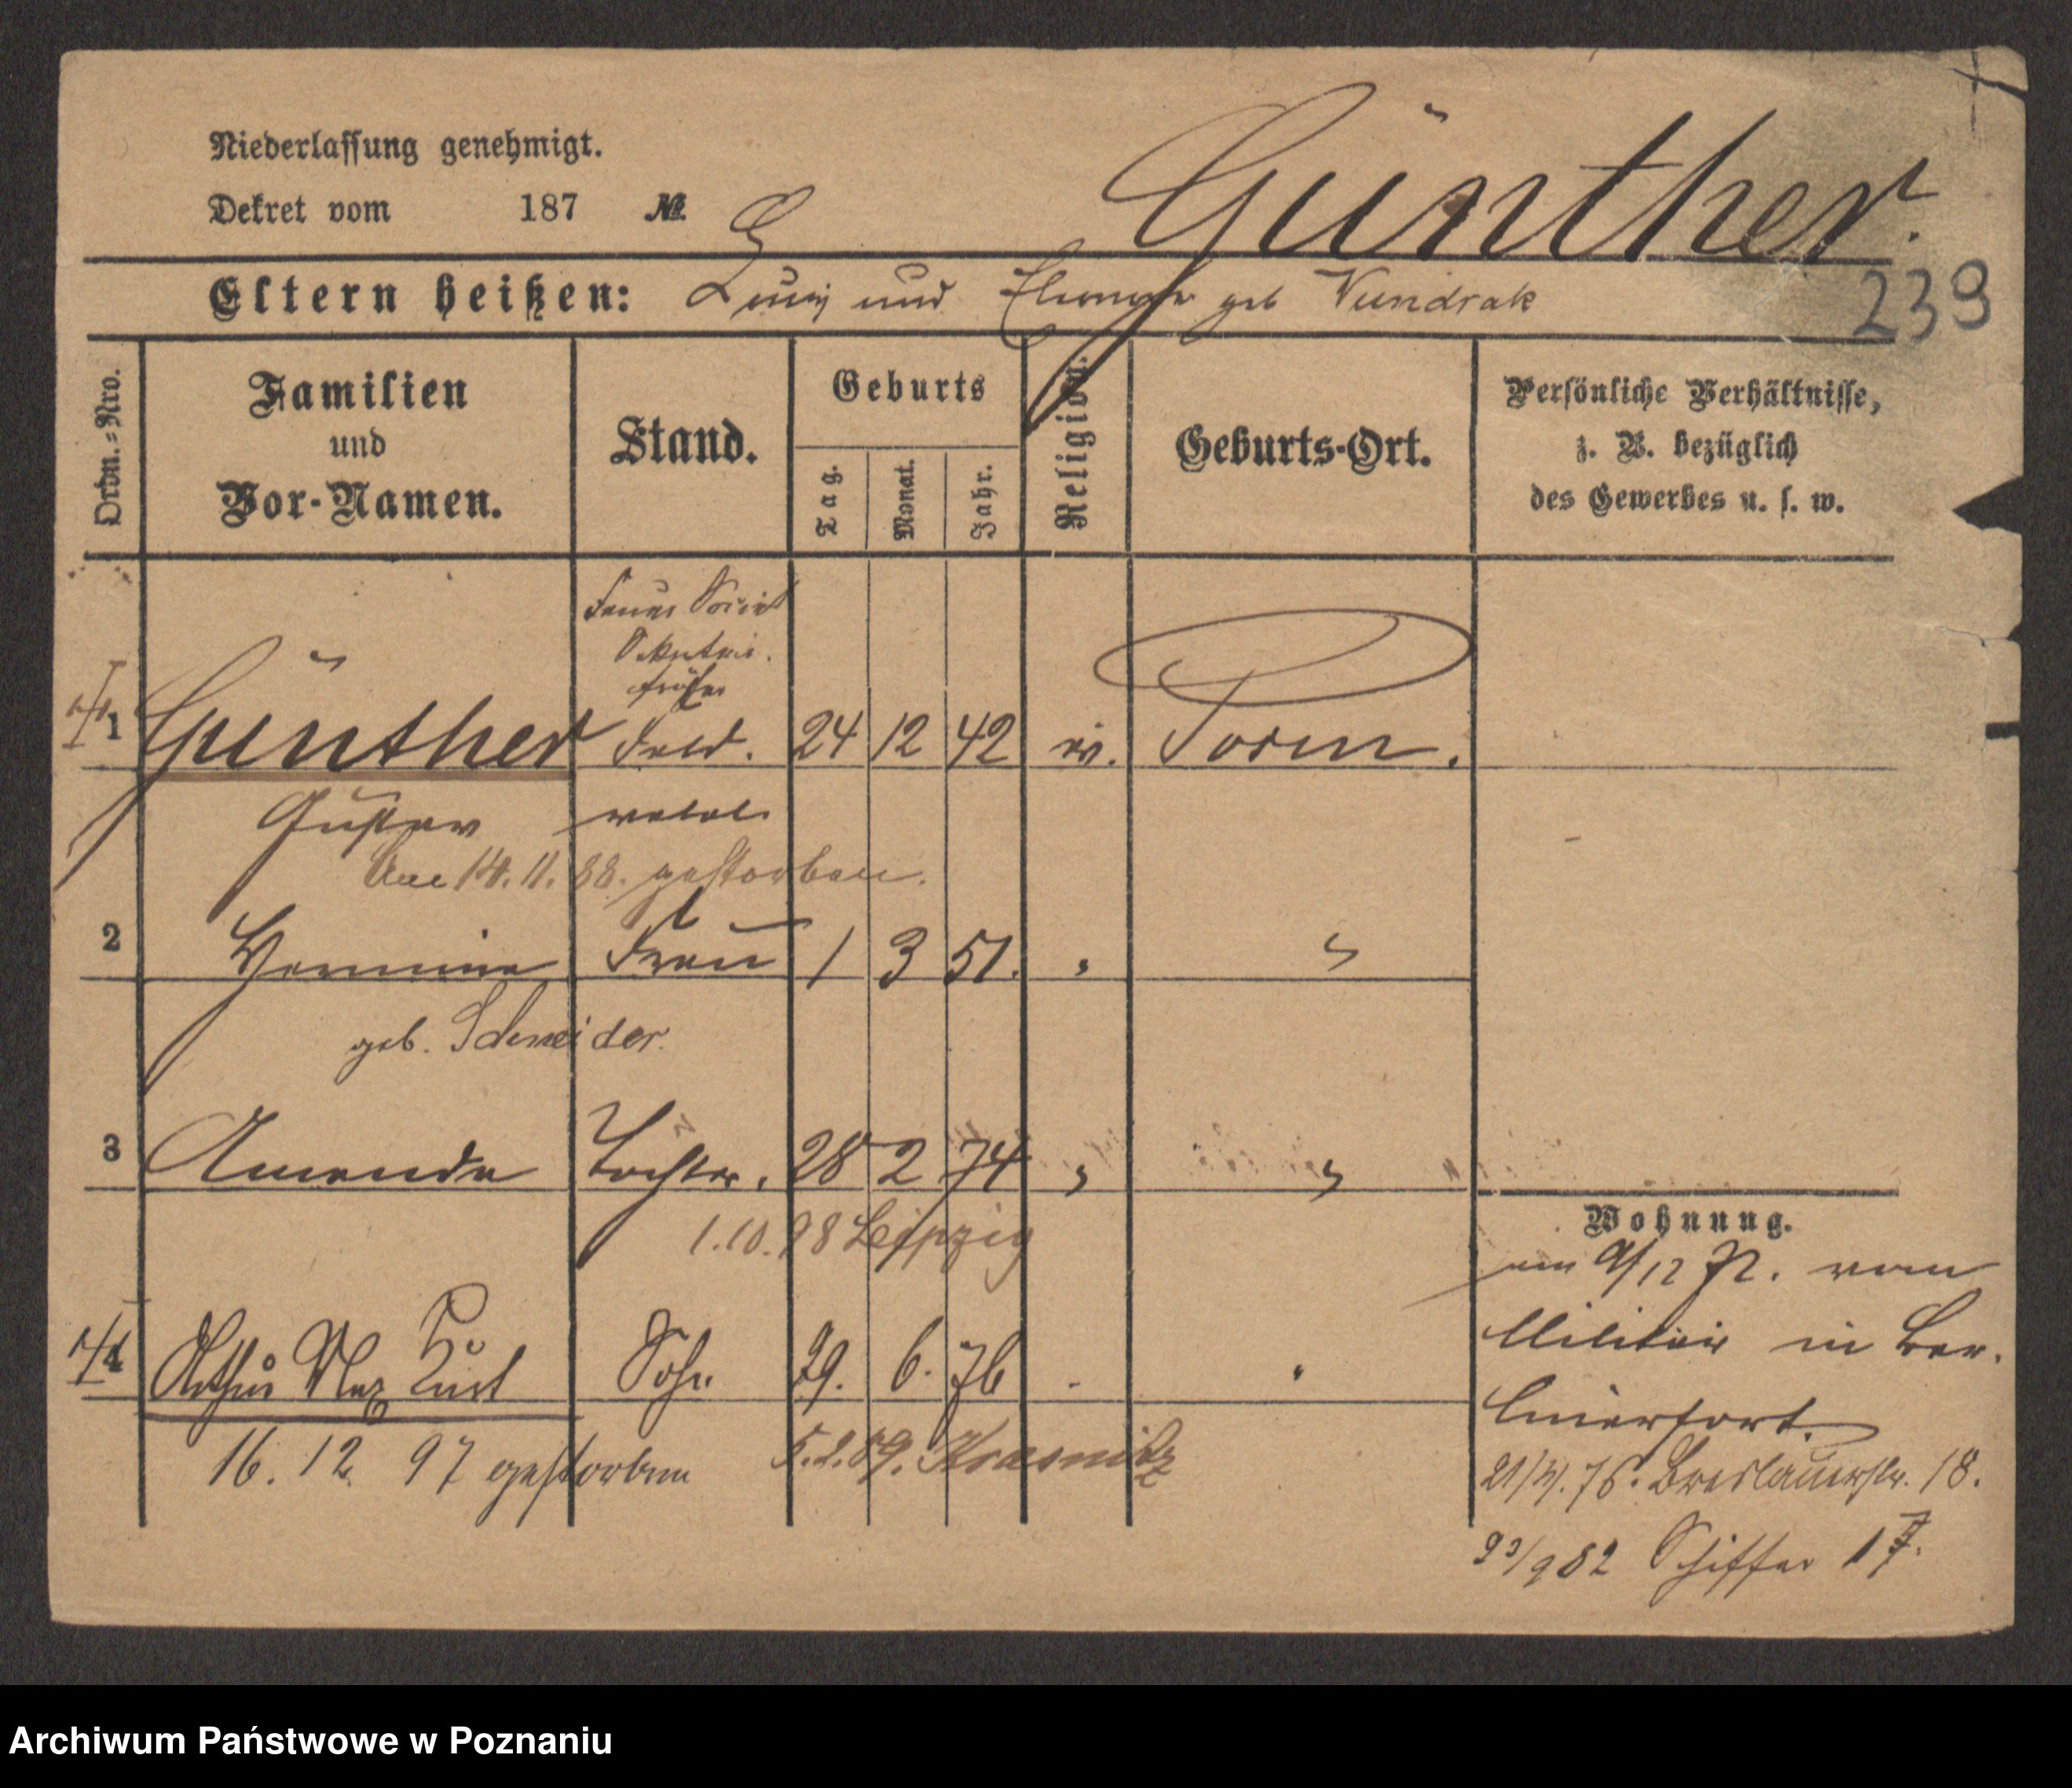 Niederlassung genehmigt.
Dekret vom 187 №
Günther.
239
Eltern heißen: und geb Vundrak
Ordn.-Nro.
Familien
und
Vor-Namen.
Stand.
Geburts
Tag.
Monat.
Jahr.
Religion.
Geburts-Ort.
Persönliche Verhältnisse,
z. B. bezüglich
des Gewerbes u. s. w.
früher
1 Günther Feld. 24 12 42 ev. Posen.
Gustav webel
Am 14. 11. 88. gestorben.
2 Hermine Frau 1 3 51.
geb. Schneider.
3 Amanda Tochter. 28 2 74
1.10.98 Leipzig
Wohnung.
am 9/12 72. vom
Militair in Ber-
linerfort.
4 Arthur Max Curt Sohn 29. 6. 76
16. 12. 97 gestorben
Breslauerstr. 18.
82 Schiffer 17.
Archiwum Państwowe w Poznaniu